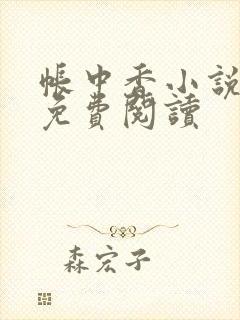 帳中香小說
免費閱讀
森宏子